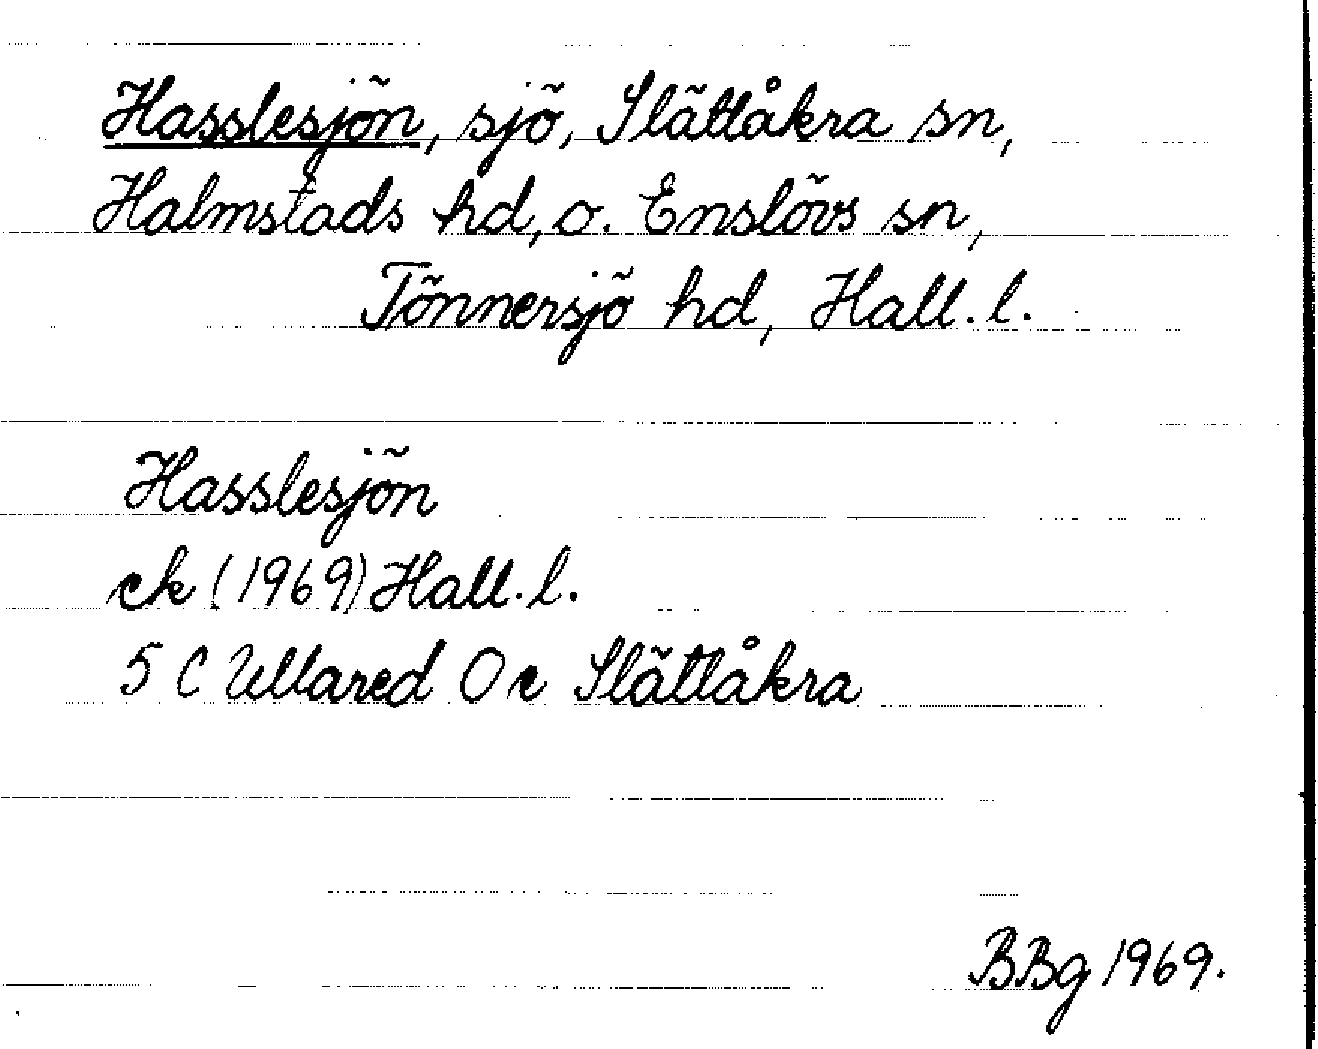 Hasslesjön, sjö, Slättåkra sn,
Halmstads hd, o. Enslövs sn,
Tönnersjö hd, Hall. l.
Hasslesjön
ek (1969) Hall. l.
5 C Ullared O e Slättåkra
BBg 1969.